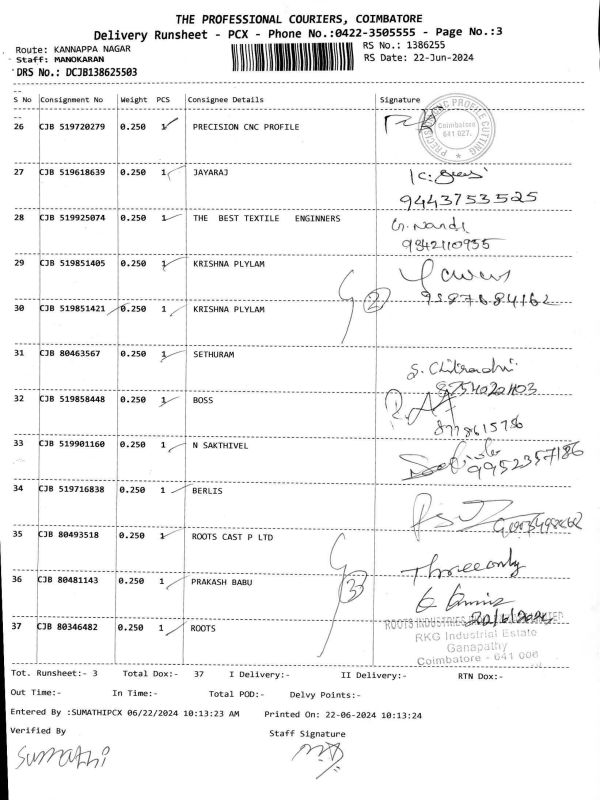 THE PROFESSIONAL COURIERS, COIMBATORE
Delivery Runsheet - PCX - Phone No.:0422-3505555 - Page No.:3
Route: KANNAPPA NAGAR
RS No.: 1386255
Staff: MANOKARAN
RS Date: 22-Jun-2024
DRS No.: DCJB138625503
S No Consignment No Weight PCS Consignee Details Signature
26 CJB 519720279 0.250 1 PRECISION CNC PROFILE
PRECISION CNC PROFILE CUTTING
Coimbatore
641 027.
27 CJB 519618639 0.250 1 JAYARAJ
9443753525
28 CJB 519925074 0.250 1 THE BEST TEXTILE ENGINNERS
G. Nandi
9842110955
29 CJB 519851405 0.250 1 KRISHNA PLYLAM
2
30 CJB 519851421 0.250 1 KRISHNA PLYLAM
31 CJB 80463567 0.250 1 SETHURAM
32 CJB 519858448 0.250 1 BOSS
33 CJB 519901160 0.250 1 N SAKTHIVEL
9952357186
34 CJB 519716838 0.250 1 BERLIS
35 CJB 80493518 0.250 1 ROOTS CAST P LTD
Three only
36 CJB 80481143 0.250 1 PRAKASH BABU
3
37 CJB 80346482 0.250 1 ROOTS
22/6/2024
ROOTS INDUSTRIES
RKG Industrial Estate
Ganapathy
Coimbatore - 641 006
Tot. Runsheet:- 3 Total Dox:- 37 I Delivery:- II Delivery:- RTN Dox:-
Out Time:- In Time:- Total POD:- Delvy Points:-
Entered By :SUMATHIPCX 06/22/2024 10:13:23 AM Printed On: 22-06-2024 10:13:24
Verified By Staff Signature
Sumathi